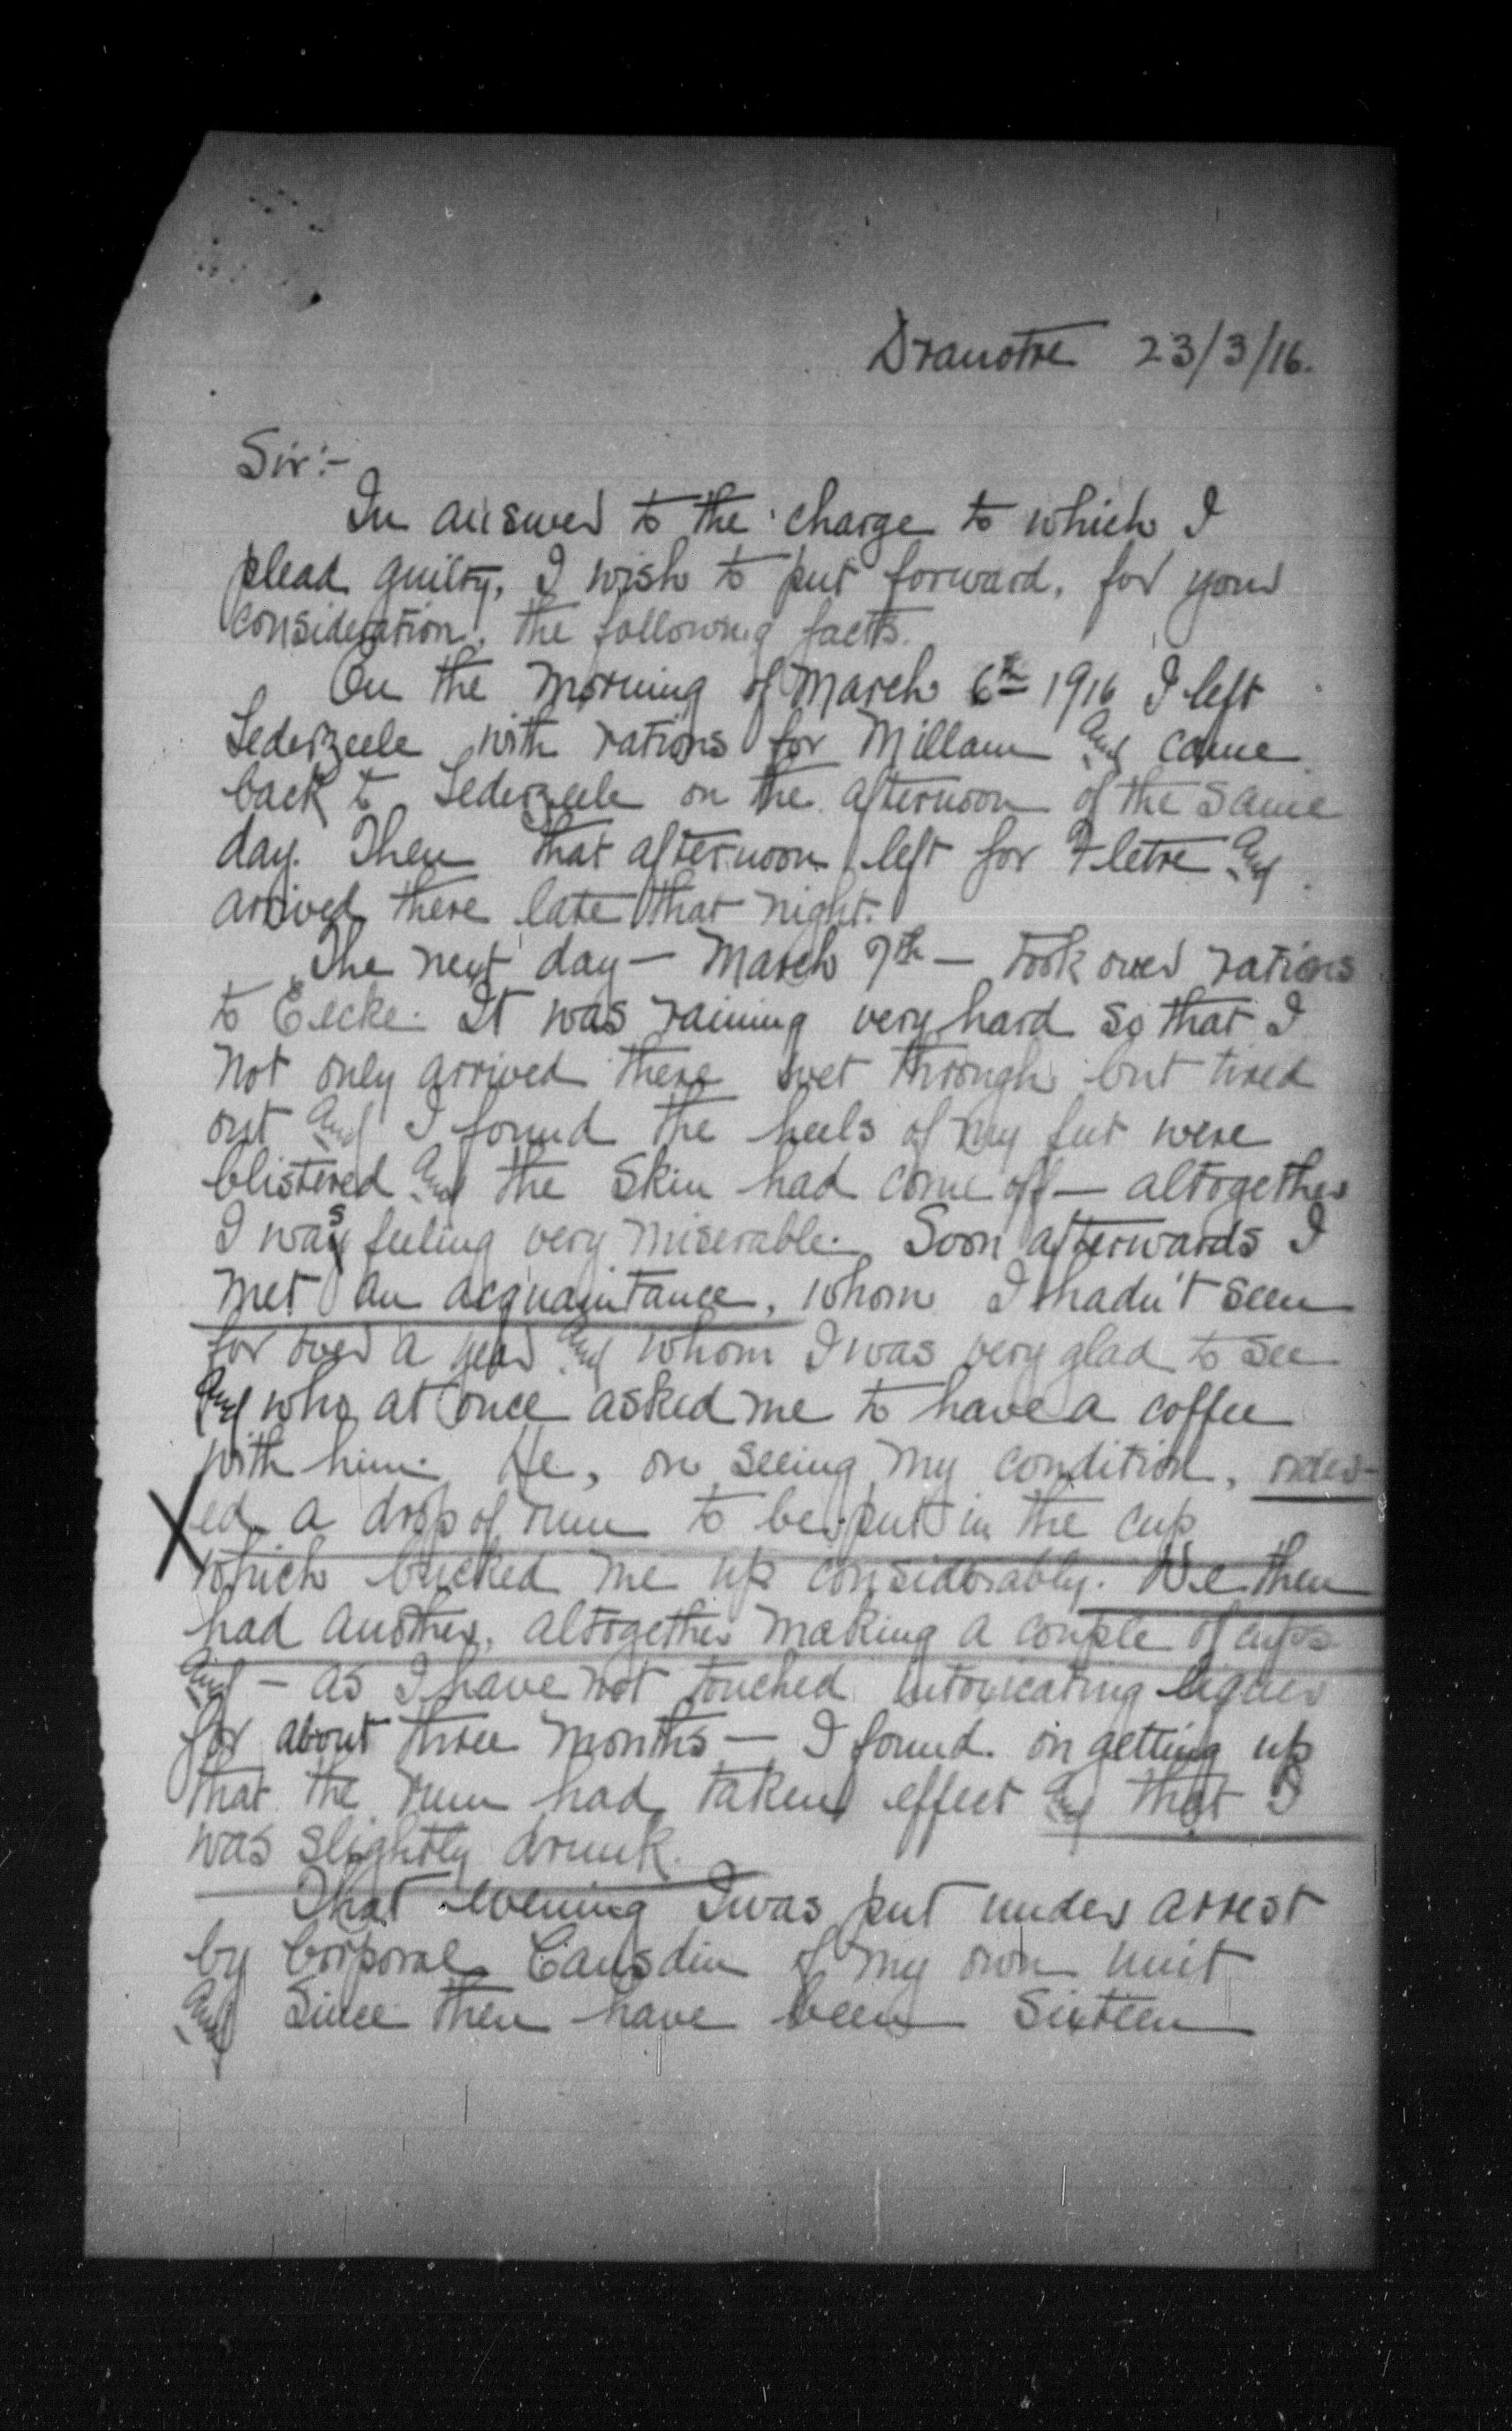 Dranotre 23/3/16.
Sir:-
In answer to the charge to which I
plead guilty, I wish to put forward, for your
consideration, the following facts.
On the morning of March 6th 1916 I left
Lederzeele with rations for Millam and came
back to Lederzeele on the afternoon of the same
day. Then that afternoon left for Fletre and
arrived there late that night.
The next day — March 7th — took over rations
to Eecke. It was raining very hard so that I
not only arrived there wet through but tired
out and I found the heels of my feet were
blistered and the skin had come off — altogether
I was feeling very miserable. Soon afterwards I
met an acquaintance, whom I hadn't seen
for over a year and whom I was very glad to see
and who at once asked me to have a coffee
with him. He, on seeing my condition, order-
ed a drop of rum to be put in the cup
which bucked me up considerably. We then
had another, altogether making a couple of cups
and — as I have not touched intoxicating liquer
for about three months — I found on getting up
that the rum had taken effect and that I
was slightly drunk.
That evening I was put under arrest
by Corporal Cansdin of my own unit
and since then have been sixteen